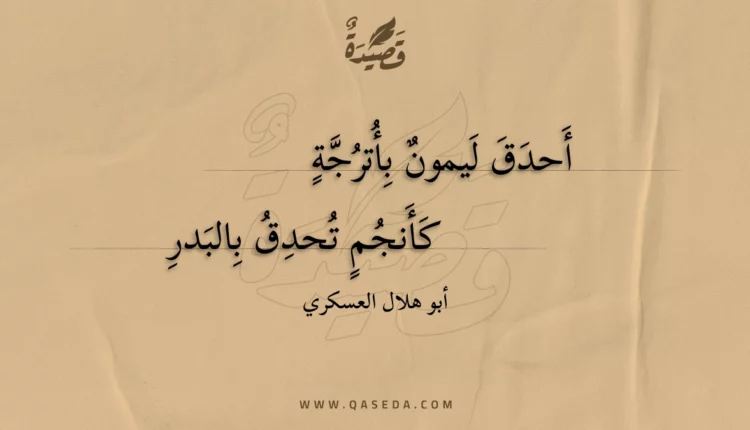 قَصِيدَةٌ
أَحدَقَ لَيمونٌ بِأُترُجَّةٍ
كَأَنجُمٍ تُحدِقُ بِالبَدرِ
أبو هلال العسكري
WWW.QASEDA.COM